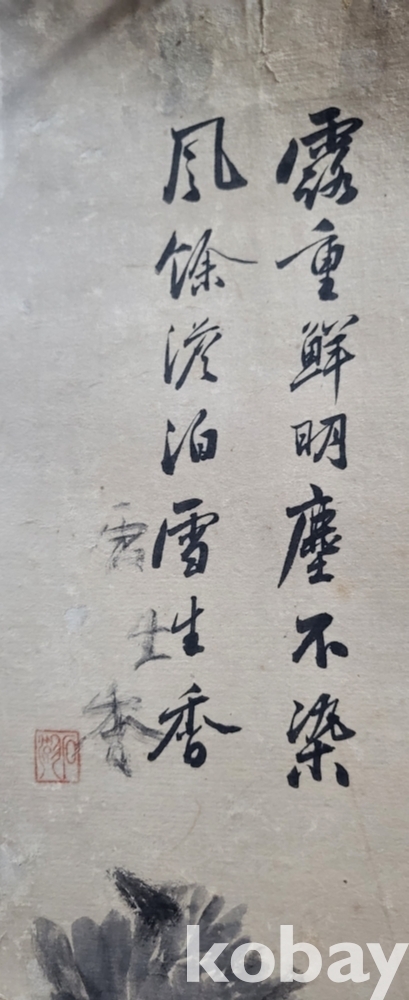 露重鮮明塵不染
風餘淡泊雪生香
雪生香
kobay